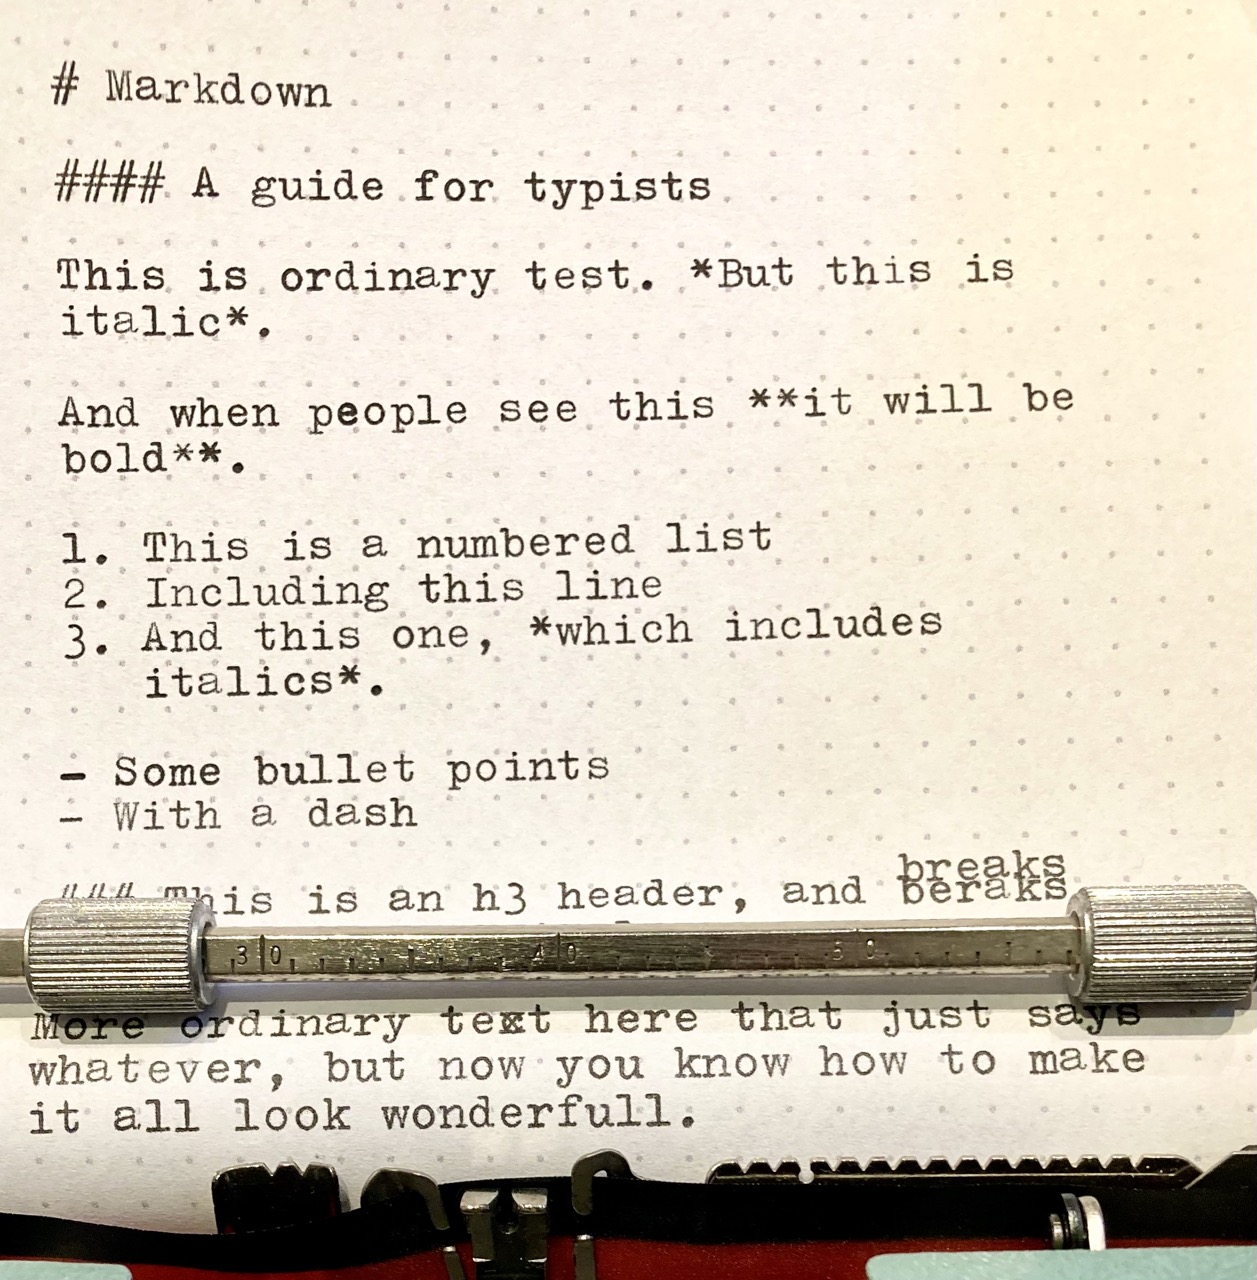 # Markdown
#### A guide for typists
This is ordinary test. *But this is
italic*.
And when people see this **it will be
bold**.
1. This is a numbered list
2. Including this line
3. And this one, *which includes
italics*.
- Some bullet points
- With a dash
breaks
### This is an h3 header, and beraks
30 40 50
More ordinary text here that just says
whatever, but now you know how to make
it all look wonderfull.